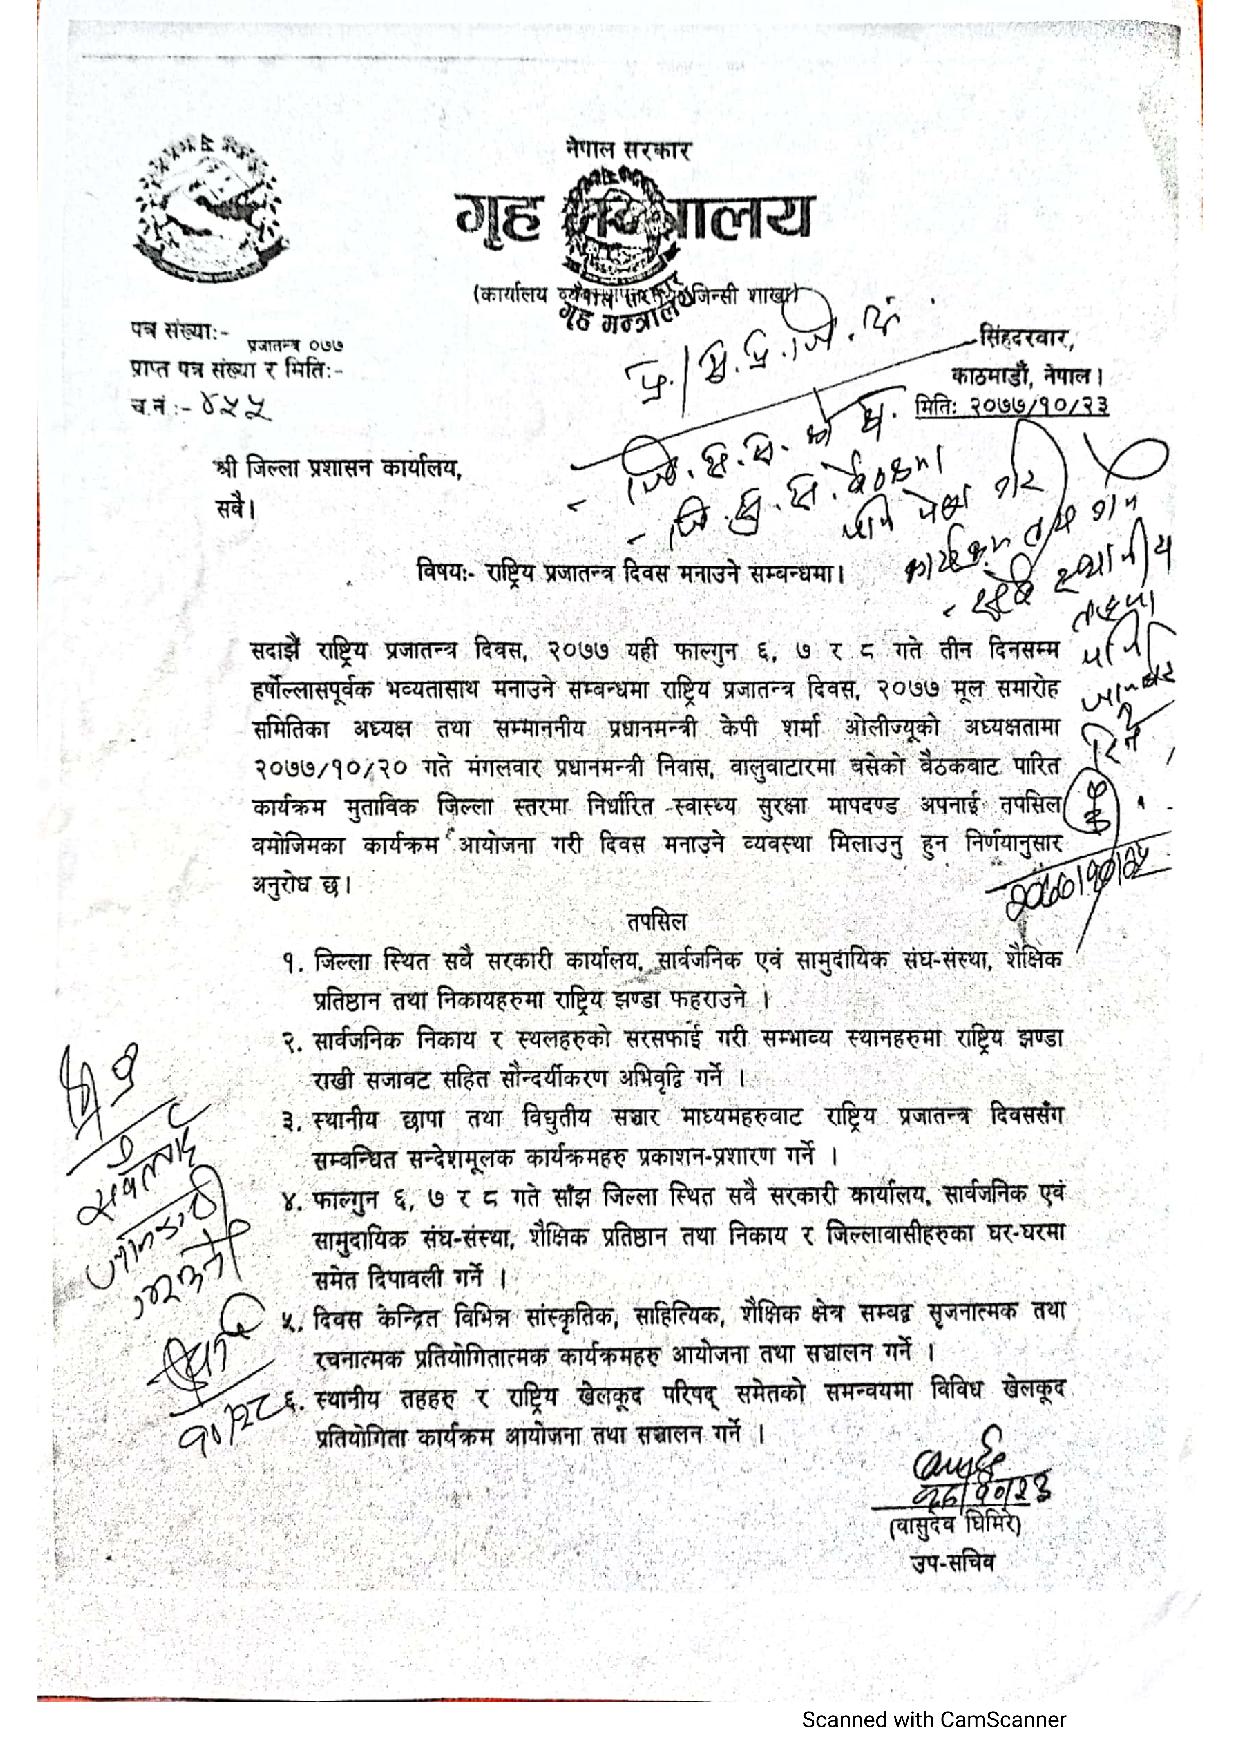 नेपाल सरकार
गृह मन्त्रालय
(कार्यालय व्यवस्थापन तथा जिन्सी शाखा)
नेपाल सरकार
गृह मन्त्रालय
पत्र संख्याः-
प्रजातन्त्र ०७७
प्राप्त पत्र संख्या र मितिः-
च.नं.:- ४५५
सिंहदरवार,
काठमाडौं, नेपाल।
मितिः २०७७/१०/२३
प्र./
जि.
श्री जिल्ला प्रशासन कार्यालय,
सवै।
गरि
कार्यक्रम
स्थानीय
विषयः- राष्ट्रिय प्रजातन्त्र दिवस मनाउने सम्बन्धमा।
सदाझैं राष्ट्रिय प्रजातन्त्र दिवस, २०७७ यही फाल्गुन ६, ७ र ८ गते तीन दिनसम्म
हर्षोल्लासपूर्वक भव्यतासाथ मनाउने सम्बन्धमा राष्ट्रिय प्रजातन्त्र दिवस, २०७७ मूल समारोह
समितिका अध्यक्ष तथा सम्माननीय प्रधानमन्त्री केपी शर्मा ओलीज्यूको अध्यक्षतामा
२०७७/१०/२० गते मंगलवार प्रधानमन्त्री निवास, वालुवाटारमा बसेको बैठकबाट पारित
कार्यक्रम मुताविक जिल्ला स्तरमा निर्धारित स्वास्थ्य सुरक्षा मापदण्ड अपनाई तपसिल
वमोजिमका कार्यक्रम आयोजना गरी दिवस मनाउने व्यवस्था मिलाउनु हुन निर्णयानुसार
अनुरोध छ।
तपसिल
१. जिल्ला स्थित सवै सरकारी कार्यालय, सार्वजनिक एवं सामुदायिक संघ-संस्था, शैक्षिक
प्रतिष्ठान तथा निकायहरुमा राष्ट्रिय झण्डा फहराउने ।
२. सार्वजनिक निकाय र स्थलहरुको सरसफाई गरी सम्भाव्य स्थानहरुमा राष्ट्रिय झण्डा
राखी सजावट सहित सौन्दर्यीकरण अभिवृद्दि गर्ने ।
३. स्थानीय छापा तथा विद्युतीय सञ्चार माध्यमहरुवाट राष्ट्रिय प्रजातन्त्र दिवससँग
सम्वन्धित सन्देशमूलक कार्यक्रमहरु प्रकाशन-प्रशारण गर्ने ।
४. फाल्गुन ६, ७ र ८ गते साँझ जिल्ला स्थित सवै सरकारी कार्यालय, सार्वजनिक एवं
सामुदायिक संघ-संस्था, शैक्षिक प्रतिष्ठान तथा निकाय र जिल्लावासीहरुका घर-घरमा
समेत दिपावली गर्ने ।
५. दिवस केन्द्रित विभिन्न सांस्कृतिक, साहित्यिक, शैक्षिक क्षेत्र सम्बद्व सृजनात्मक तथा
रचनात्मक प्रतियोगितात्मक कार्यक्रमहरु आयोजना तथा सञ्चालन गर्ने ।
६. स्थानीय तहहरु र राष्ट्रिय खेलकूद परिषद् समेतको समन्वयमा विविध खेलकूद
प्रतियोगिता कार्यक्रम आयोजना तथा सञ्चालन गर्ने ।
सबैलाई
जानकारी
गराउने
१०/२८
(वासुदेव घिमिरे)
उप-सचिव
Scanned with CamScanner